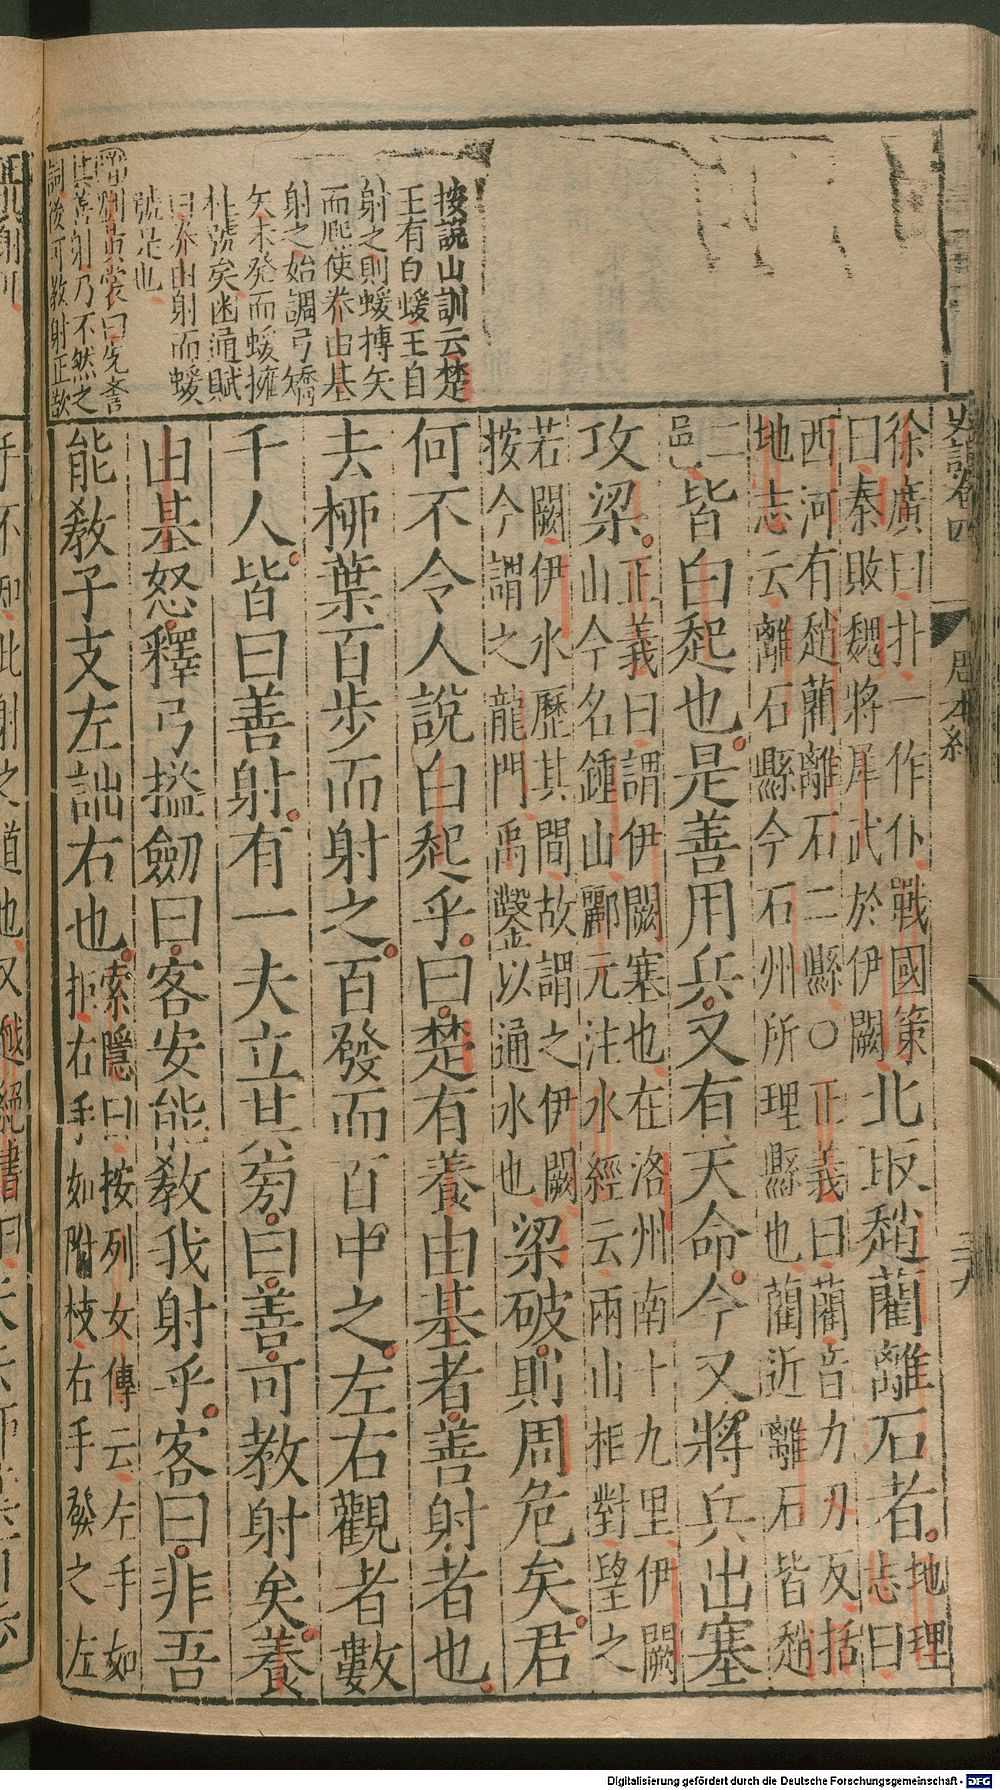 史記卷四
周本紀
三六
徐廣曰扑一作仆戰國策
曰秦敗魏將犀武於伊闕
北取趙藺離石者
地理
志曰
西河有趙藺離石二縣○正義曰藺音力刃反括
地志云離石縣今石州所理縣也藺近離石皆趙
二
邑
皆白起也是善用兵又有天命今又將兵出塞
攻梁
正義曰謂伊闕塞也在洛州南十九里伊闕
山今名鍾山酈元注水經云兩山相對望之
若闕伊水歷其間故謂之伊闕
按今謂之龍門禹鑿以通水也
梁破則周危矣君
何不令人說白起乎曰楚有養由基者善射者也
去柳葉百步而射之百發而百中之左右觀者數
千人皆曰善射有一夫立其旁曰善可教射矣養
由基怒釋弓搤劒曰客安能敎我射乎客曰非吾
能敎子支左詘右也
索隱曰按列女傳云左手如
拒右手如附枝右手發之左
按說山訓云楚
王有白蝯王自
射之則蝯搏矢
而熈使養由基
射之始調弓矯
矢未發而蝯擁
柱號矣幽通賦
曰養由射而蝯
號是也
其善射乃不然之
詞後何敎射正歒
Digitalisierung gefördert durch die Deutsche Forschungsgemeinschaft - DFG